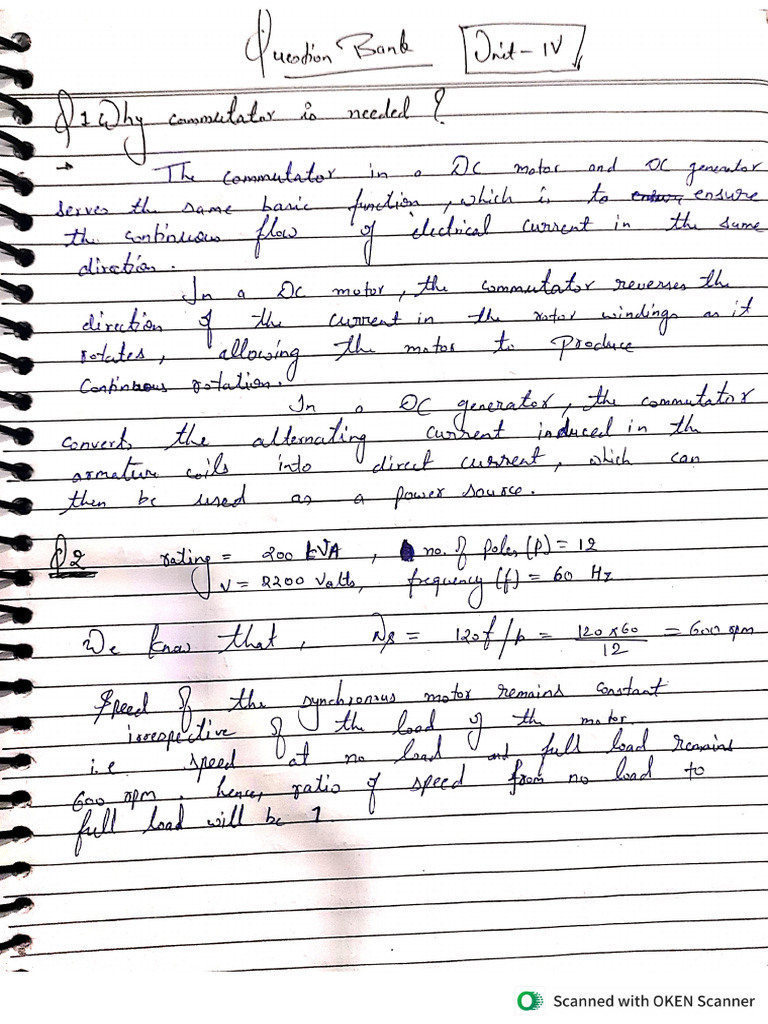 Question Bank Unit - IV
Q1 Why commutator is needed ?
→ The commutator in a DC motor and DC generator
serves the same basic function, which is to ensure
the continuous flow of electrical current in the same
direction.
In a DC motor, the commutator reverses the
direction of the current in the rotor windings as it
rotates, allowing the motor to produce
continuous rotation.
In a DC generator, the commutator
converts the alternating current induced in the
armature coils into direct current, which can
then be used as a power source.
Q2 rating = 200 kVA , no. of poles (P) = 12
V = 2200 Volts, frequency (f) = 60 Hz
We know that, Ns = 120f/p = 120×60/12 = 600 rpm
Speed of the synchronous motor remains constant
irrespective of the load of the motor.
i.e speed at no load and full load remains
600 rpm. hence, ratio of speed from no load to
full load will be 1
Scanned with OKEN Scanner